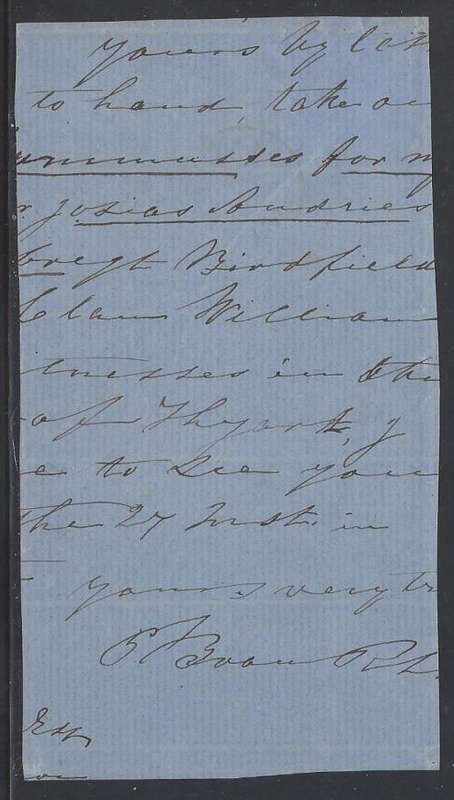 yours by last
to hand, take ou
summusses for my
r Josias Andries
bregt Birdfield
Claas William
itnesses in the
of Thyart, J
e to see you
the 27 Inst. in
yours very tr
Esq